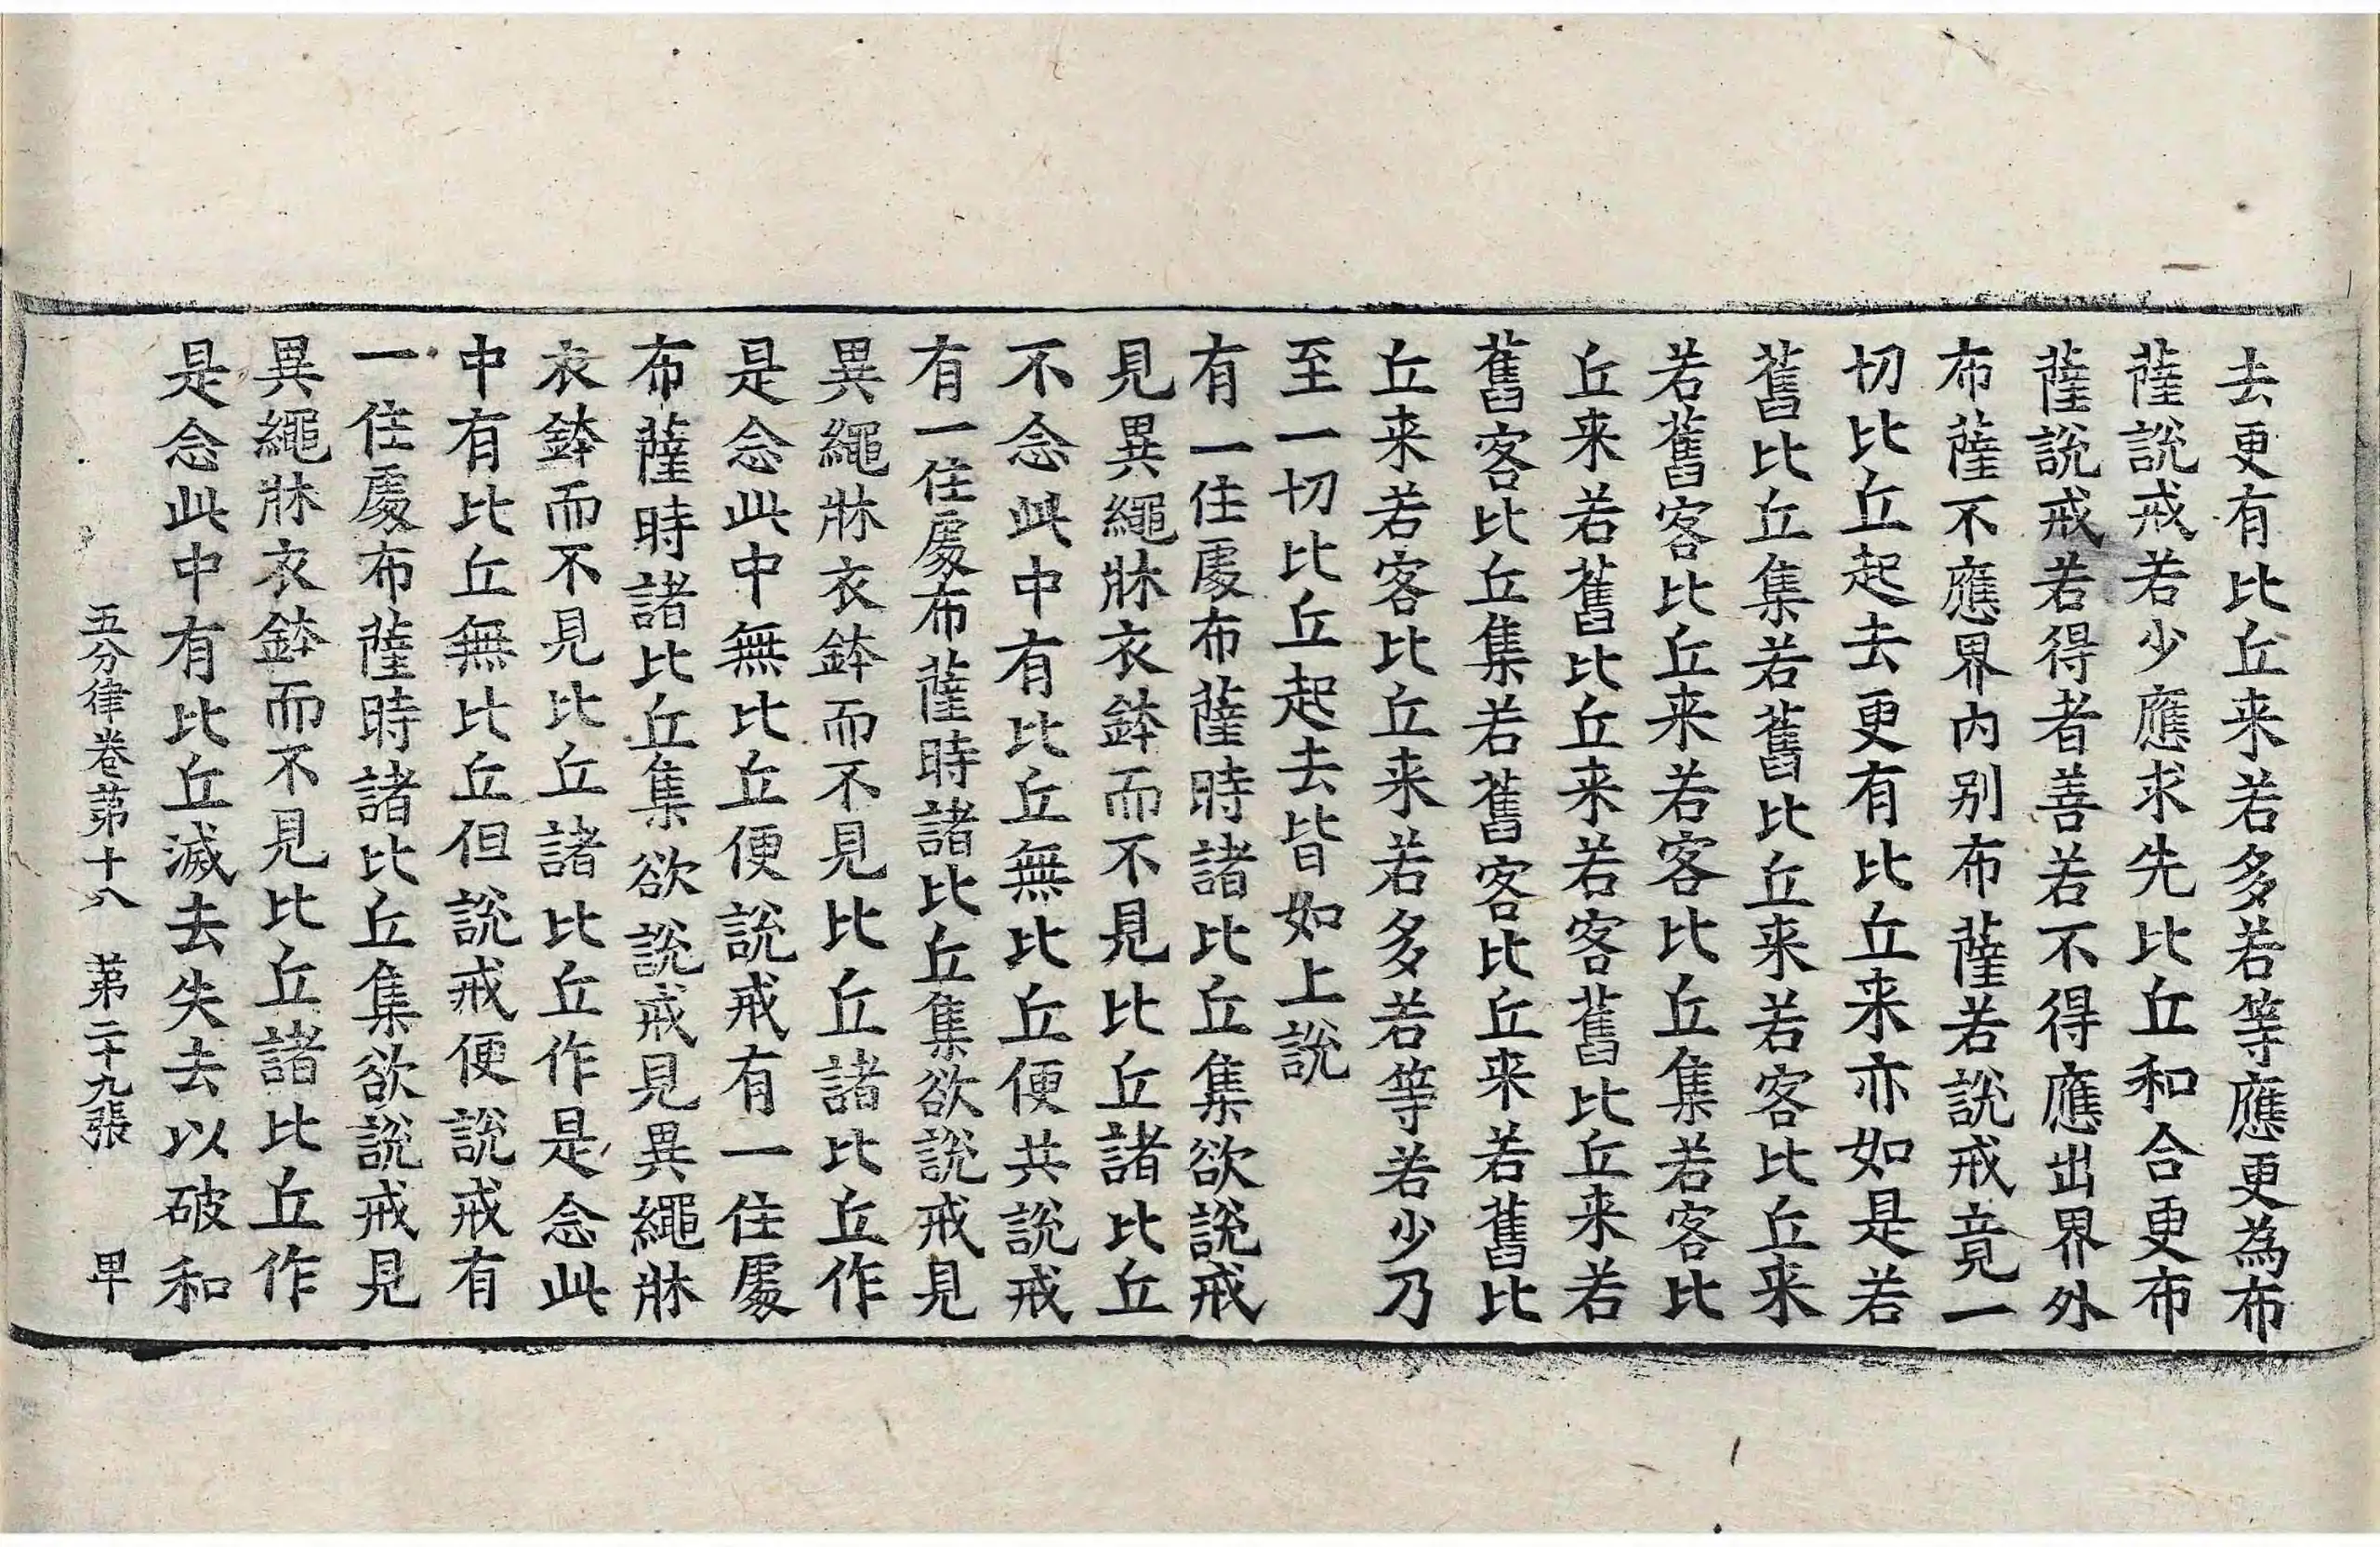 去更有比丘来若多若等應更為布
薩說戒若少應求先比丘和合更布
薩說戒若得者善若不得應出界外
布薩不應界内别布薩若說戒竟一
切比丘起去更有比丘来亦如是若
舊比丘集若舊比丘来若客比丘来
若舊客比丘来若客比丘集若客比
丘来若舊比丘来若客舊比丘来若
舊客比丘集若舊客比丘来若舊比
丘来若客比丘来若多若等若少乃
至一切比丘起去皆如上說
有一住處布薩時諸比丘集欲說戒
見異繩牀衣鉢而不見比丘諸比丘
不念此中有比丘無比丘便共說戒
有一住處布薩時諸比丘集欲說戒見
異繩牀衣鉢而不見比丘諸比丘作
是念此中無比丘便說戒有一住處
布薩時諸比丘集欲說戒見異繩牀
衣鉢而不見比丘諸比丘作是念此
中有比丘無比丘但說戒便說戒有
一住處布薩時諸比丘集欲說戒見
異繩牀衣鉢而不見比丘諸比丘作
是念此中有比丘滅去失去以破和
五分律卷第十八 第二十九張